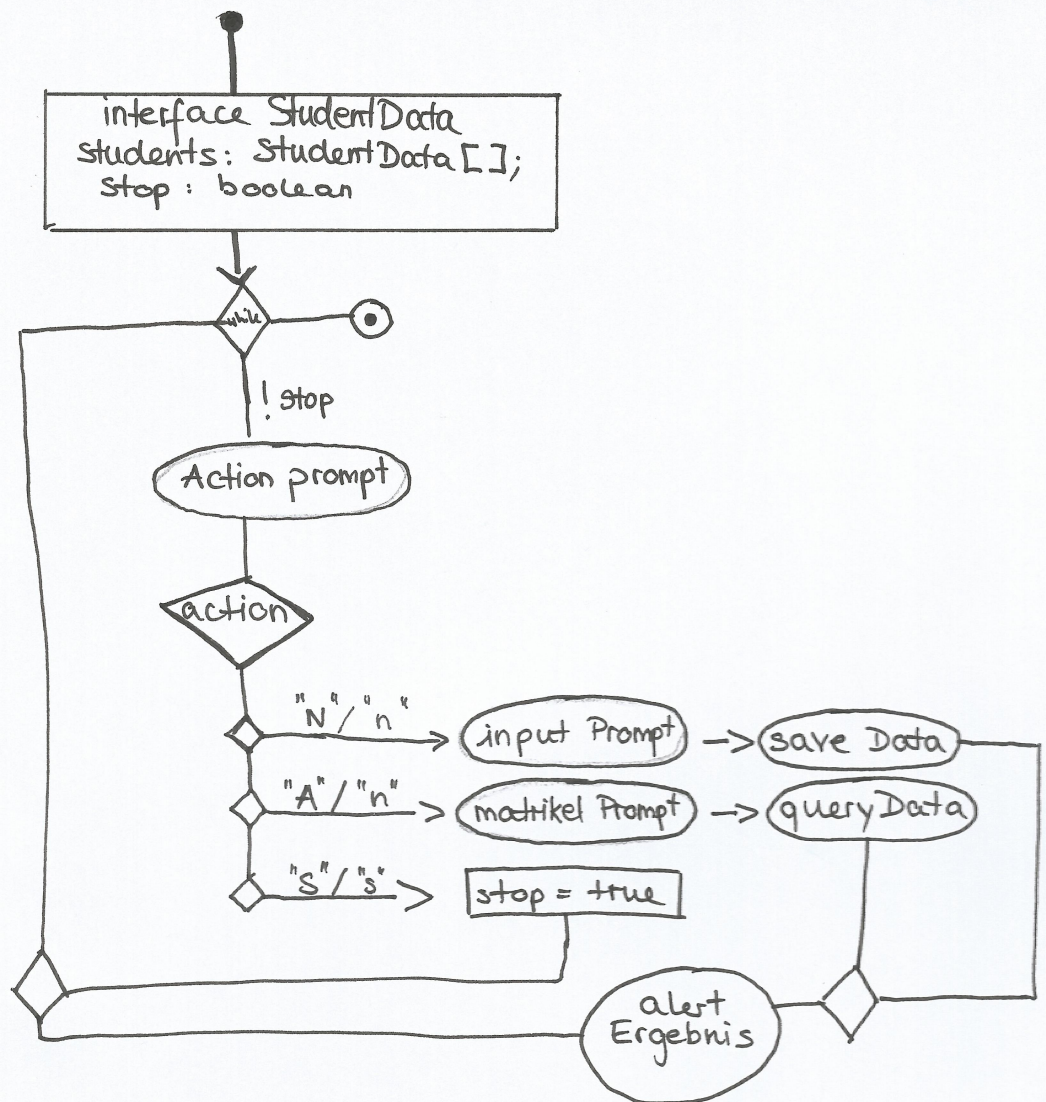 interface StudentData
students: StudentData[];
stop : boolean
while
! stop
Action prompt
action
"N"/"n"
input Prompt
save Data
"A"/"n"
matrikel Prompt
queryData
"S"/"s"
stop = true
alert
Ergebnis